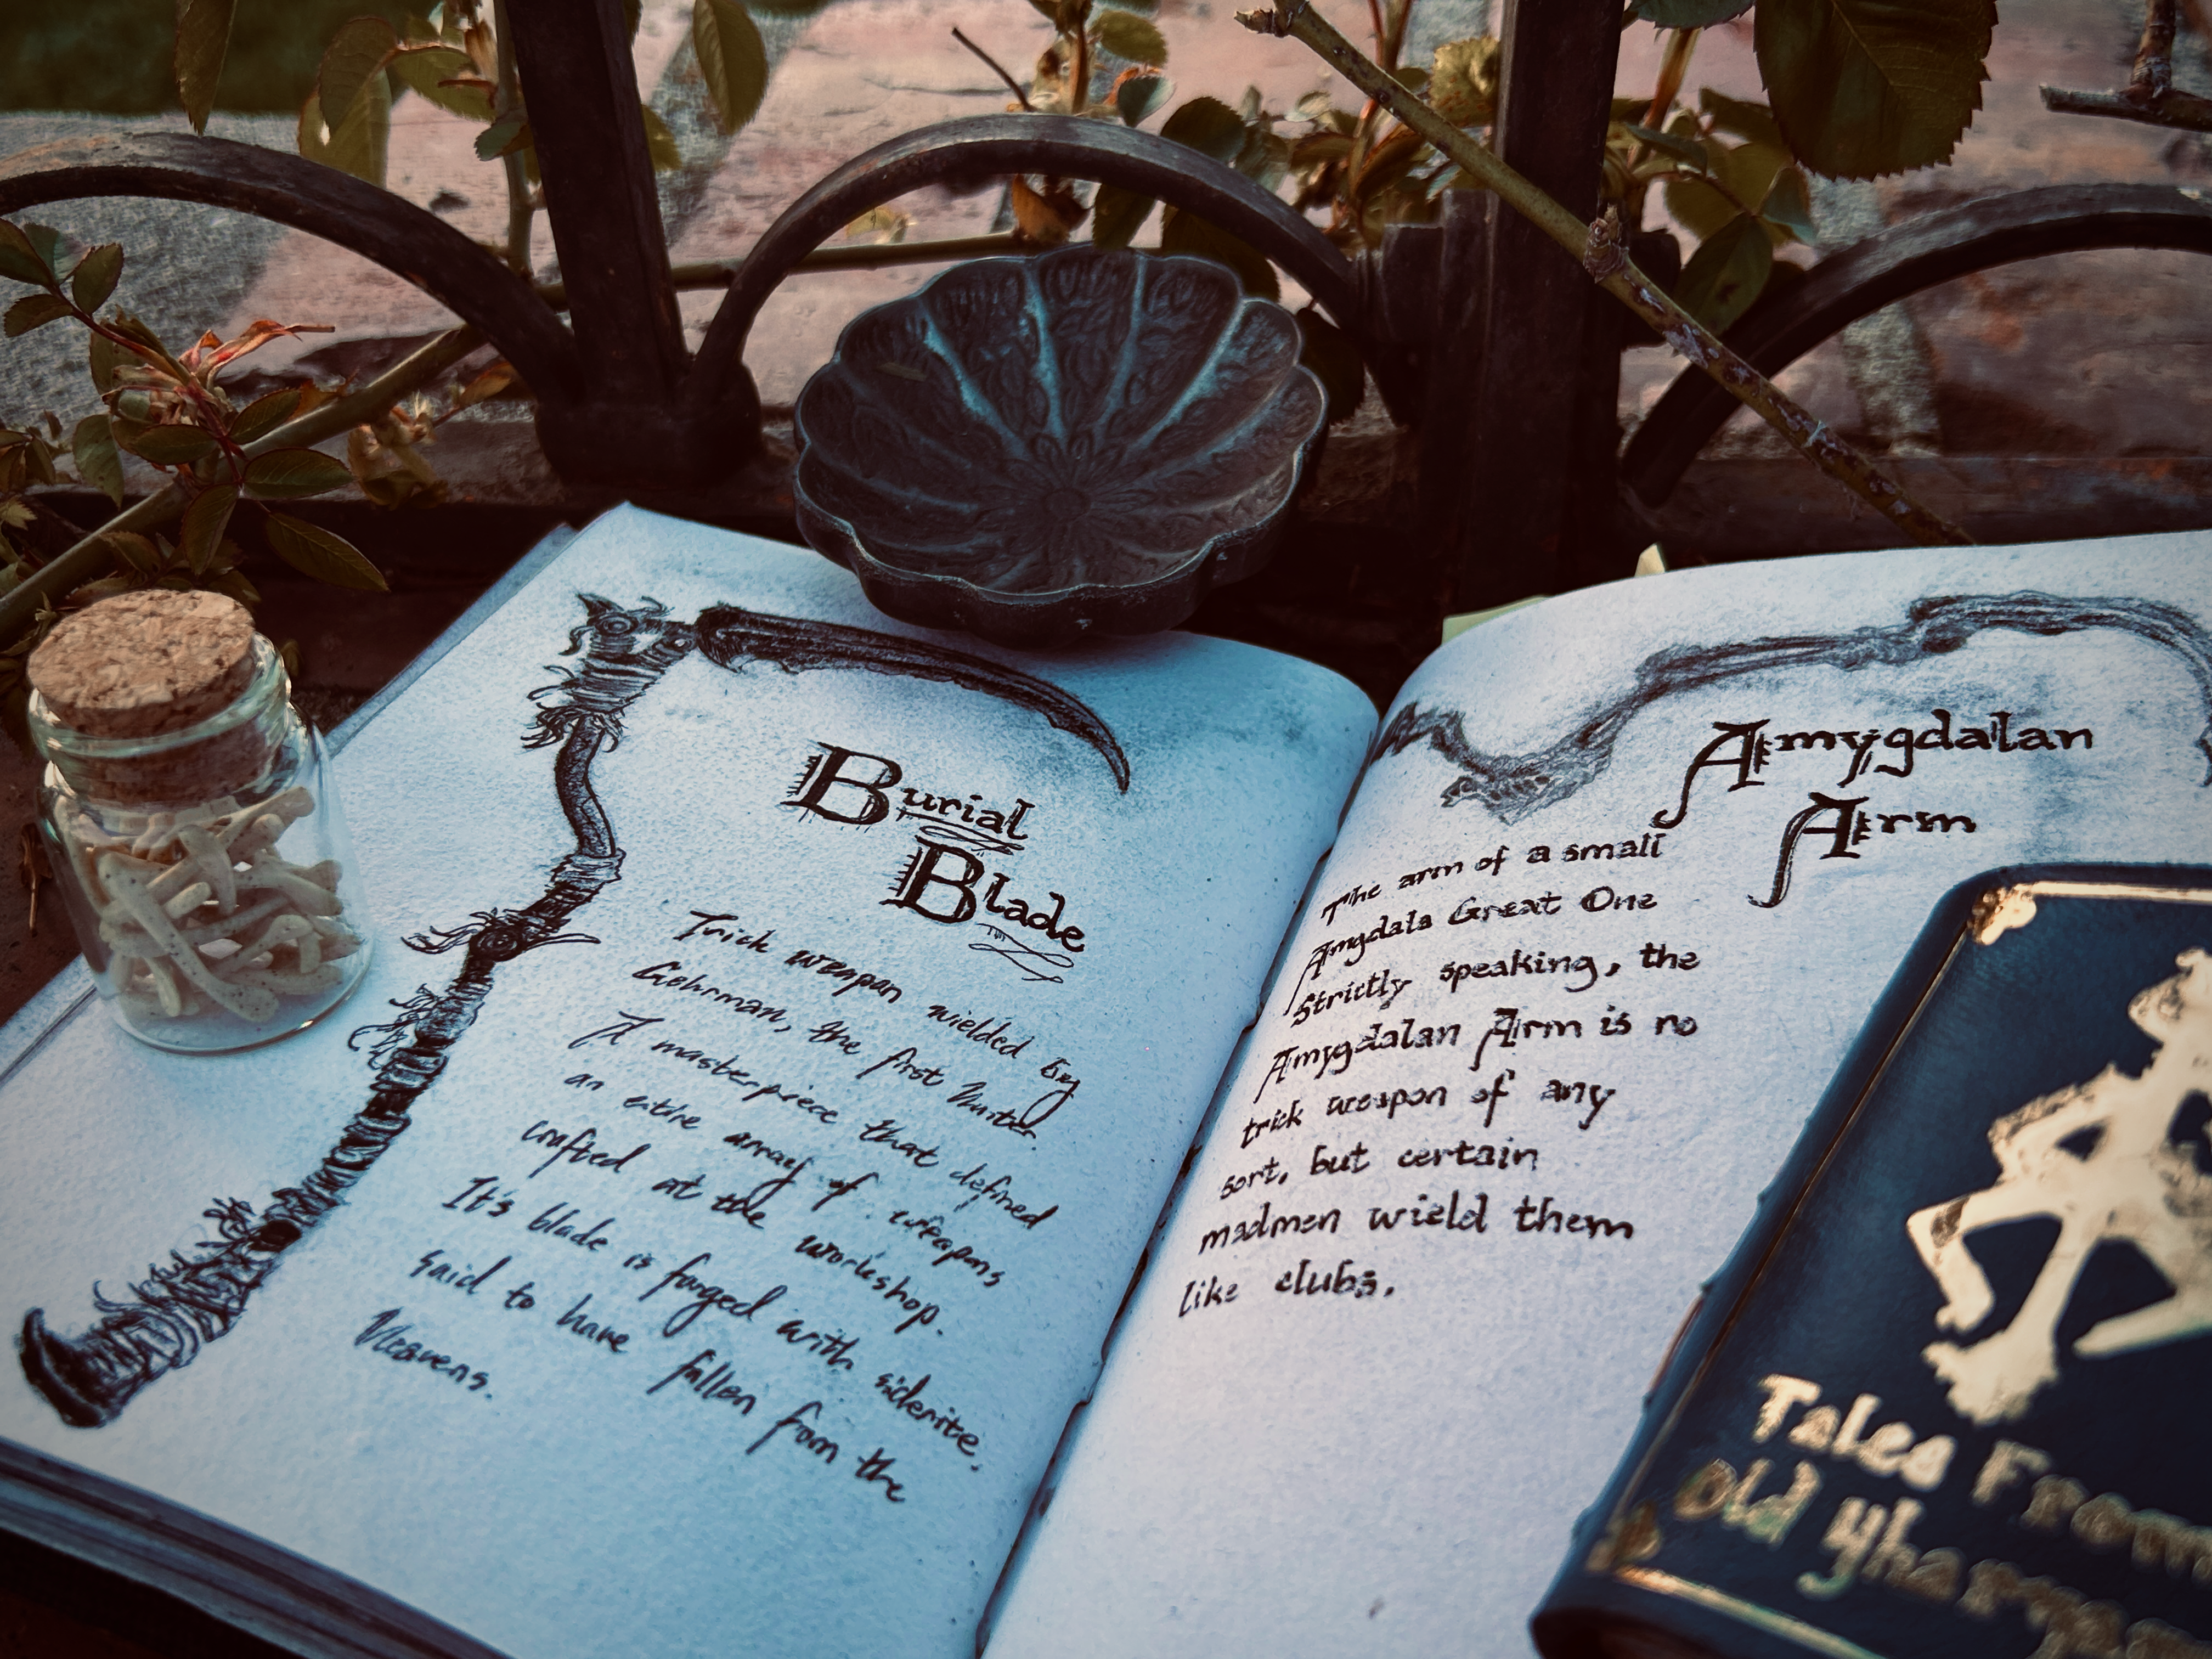 Burial
Blade
Trick weapon wielded by
Gehrman, the first Hunter.
A masterpiece that defined
an entire array of weapons
crafted at the workshop.
It's blade is forged with siderite,
said to have fallen from the
Heavens.
Amygdalan
Arm
The arm of a small
Amgdala Great One
Strictly speaking, the
Amygdalan Arm is no
trick weapon of any
sort, but certain
madmen wield them
like clubs.
Tales From
Old Yharnam